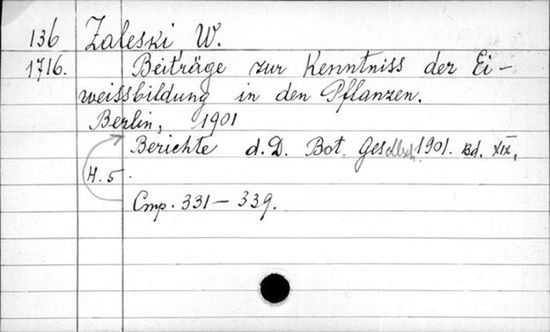 136 Zaleski W.
1716. Beiträge zur Kenntniss der Ei-
weissbildung in den Pflanzen.
Berlin, 1901
Berichte d. D. Bot. Gesellsch. 1901. Bd. XIX,
H. 5.
Стр. 331–339.